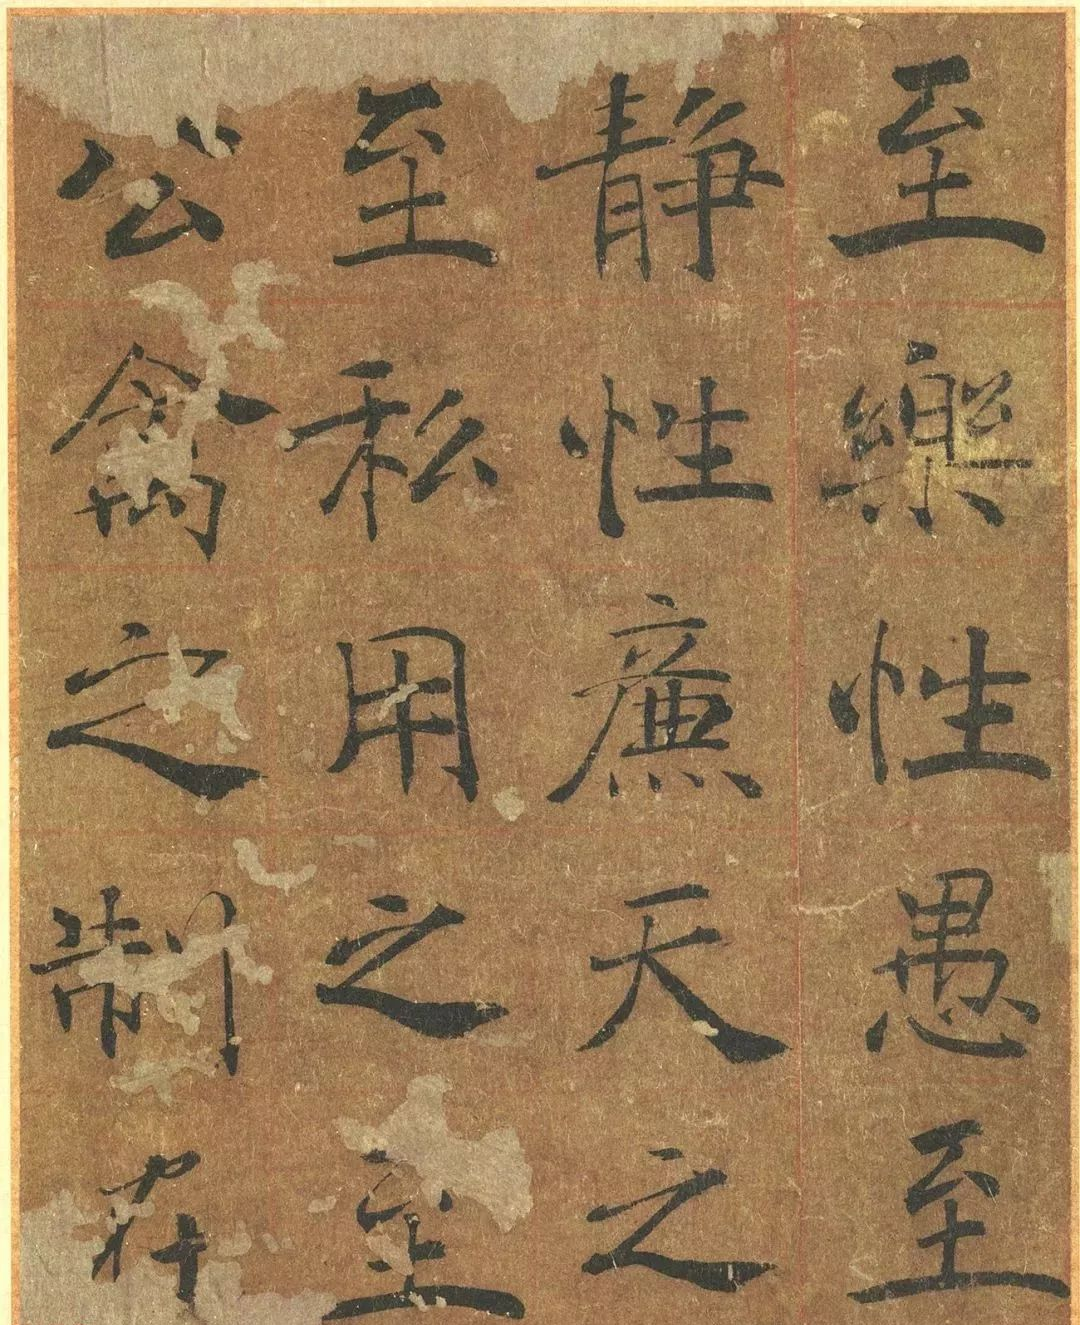 至樂性愚至
靜性廉天之
至私用之至
公禽之制在